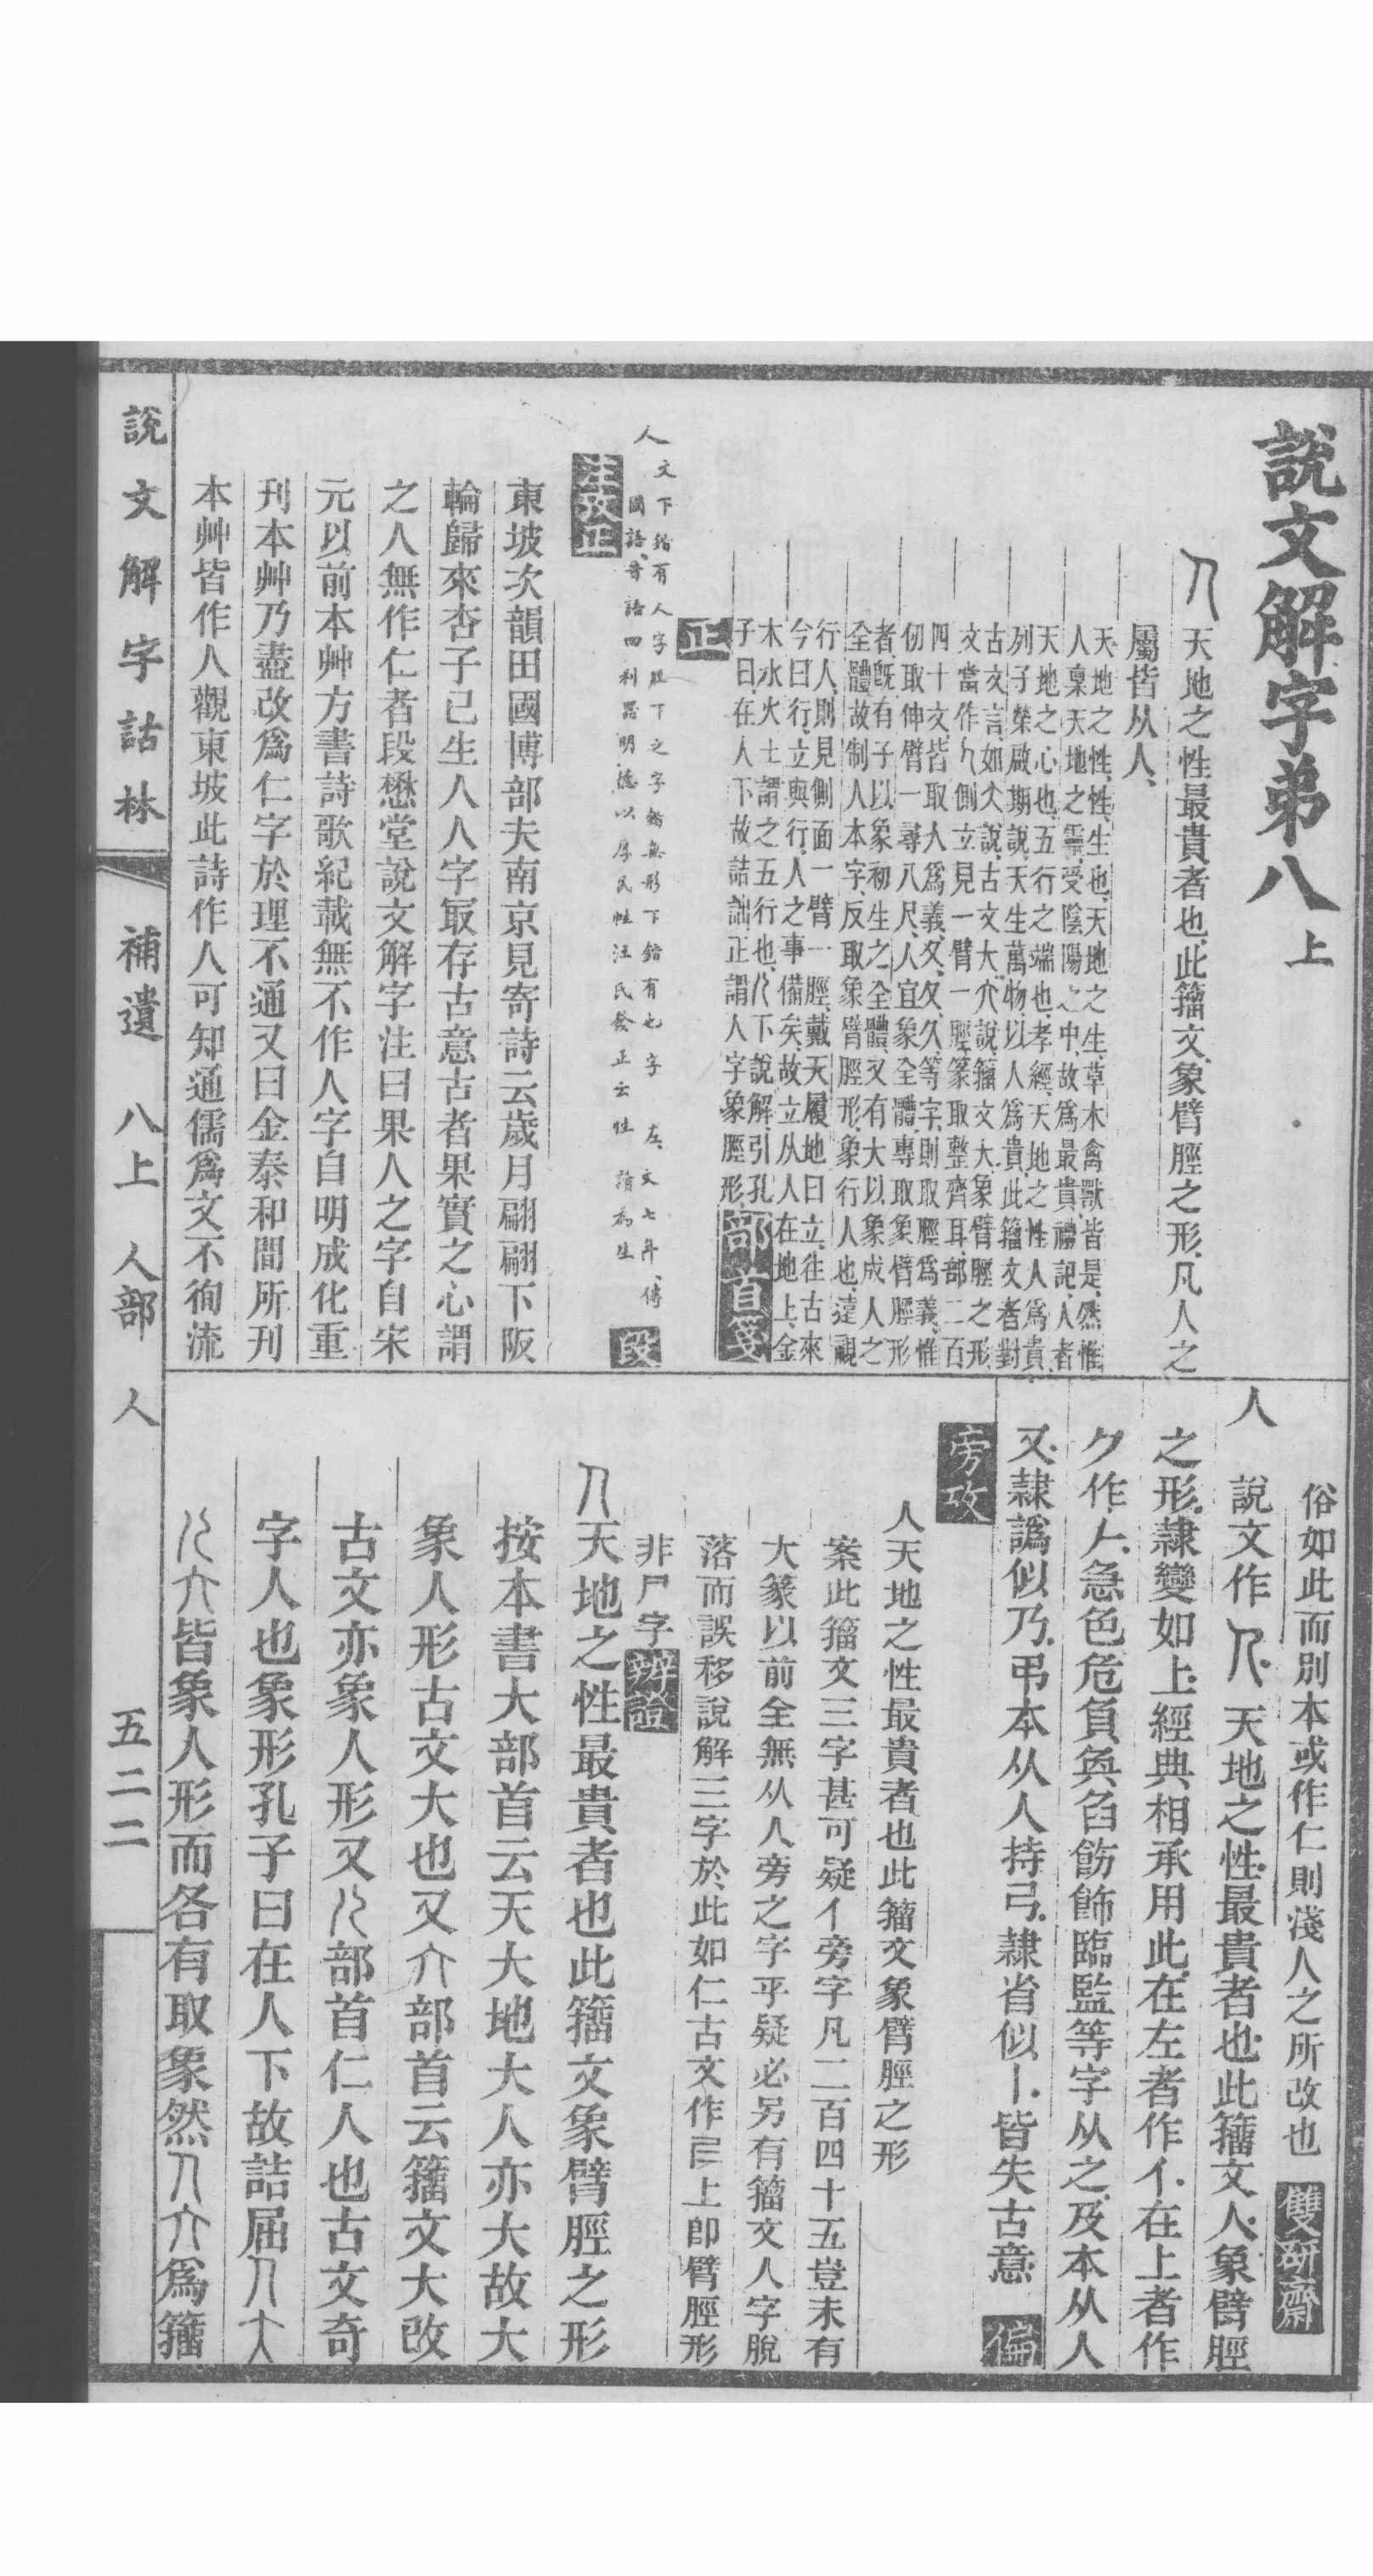 說文解字弟八上
天地之性最貴者也此籀文象臂脛之形凡人之
屬皆从人
天地之性性生也天地之生草木禽獸皆是然惟
人稟天地之靈受陰陽之中故爲最貴禮記人者
天地之心也五行之端也孝經天地之性人爲貴
列子榮啟期說天生萬物以人爲貴此籀文者對
古文言如大說古文大介說籀文大象臂脛之形
文當作 側立見一臂一脛篆取整齊耳部二百
四十文皆取人爲義夂夊久等字則取脛爲義惟
仞取伸臂一尋八尺人宜象全體專取象臂脛形
者旣有子以象初生之全體又有大以象成人之
全體故制人本字反取象臂脛形象行人也遠視
行人則見側面一臂一脛戴天履地曰立往古來
今曰行立與行人之事備矣故立从人在地上金
木水火土謂之五行也 下說解引孔
子曰在人下故詰詘正謂人字象脛形部首箋
正
人 文下鍇有人字脛下之字鍇無形下鍇有也字 左文七年傳
國語晉語 利器明德以厚民性汪氏發正云性讀爲生
段
注攷正
東坡次韻田國博部夫南京見寄詩云歲月翩翩下阪
輪歸來杏子已生人人字㝡存古意古者果實之心謂
之人無作仁者段懋堂說文解字注曰果人之字自宋
元以前本艸方書詩歌紀載無不作人字自明成化重
刊本艸乃盡改爲仁字於理不通又曰金泰和間所刊
本艸皆作人觀東坡此詩作人可知通儒爲文不徇流
俗如此而別本或作仁則淺人之所改也 雙硏齋
人 說文作 天地之性最貴者也此籀文人象臂脛
之形隸變如上經典相承用此在左者作亻在上者作
𠂊作𠂉急色危負奐臽飭飾臨監等字从之及本从人
又隸譌似乃弔本从人持弓隸省似丨皆失古意 偏
旁攷
人天地之性最貴者也此籀文象臂脛之形
案此籀文三字甚可疑亻旁字凡二百四十五豈未有
大篆以前全無从人旁之字乎疑必另有籀文人字脫
落而誤移說解三字於此如仁古文作𡰥上卽臂脛形
非尸字辨證
天地之性最貴者也此籀文象臂脛之形
按本書大部首云天大地大人亦大故大
象人形古文大也又介部首云籀文大改
古文亦象人形又 部首仁人也古文奇
字人也象形孔子曰在人下故詰屈 大
皆象人形而各有取象然 爲籀
說文解字詁林 補遺 八上 人部 人 五二二